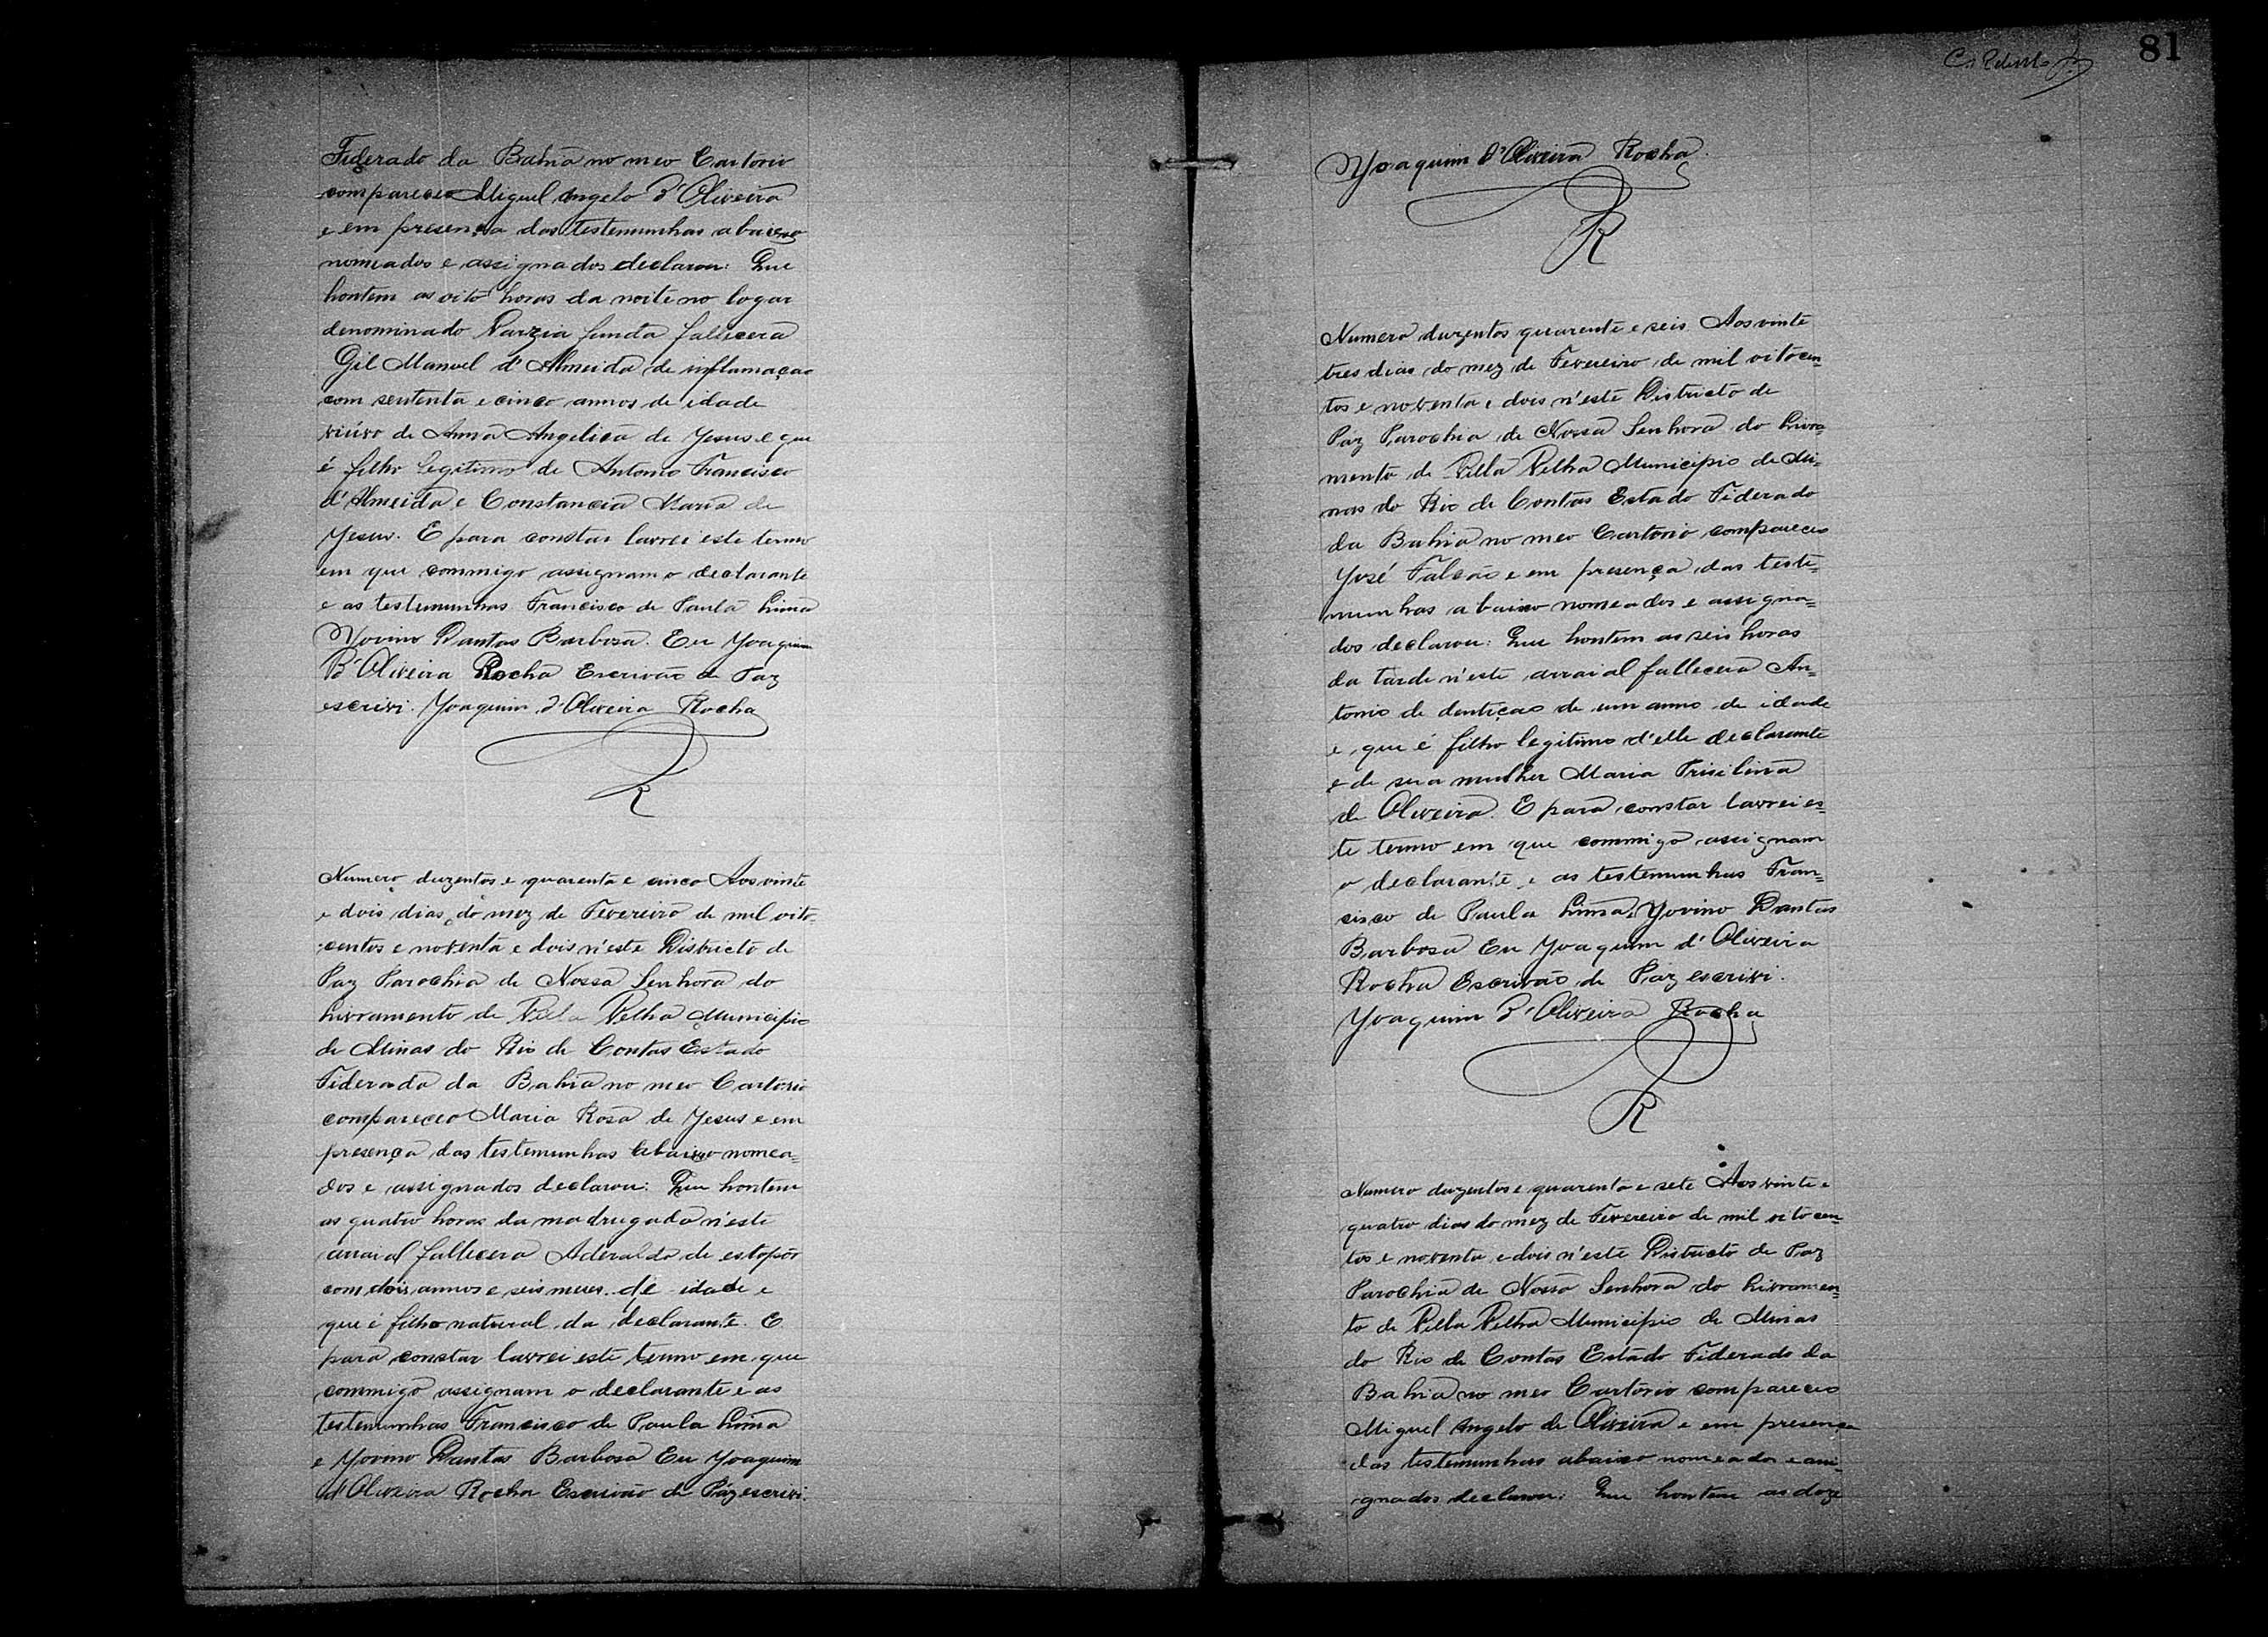 Federado da Bahia no meo Cartorio
compareceo Miguel Angelo d'Oliveira
e em presença das testemunhas abaixo
nomeados e assignados declarou: Que
hontem as oito horas da noite no logar
denominado Varzia funda fallecera
Gil Manoel d'Almeida de inflamação
com sententa e cinco annos de idade
viúvo de Anna Angelica de Jesus e que
é filho legitimo de Antonio Francisco
d'Almeida e Constancia Maria de
Jesus. E para constar lavrei este termo
em que commigo assignam o declarante
e as testemunhas Francisco de Paula Lima
Jovino Dantas Barbosa. Eu Joaquim
d'Oliveira Rocha Escrivão de Paz
escrivi. Joaquim d'Oliveira Rocha
R
Numero duzentos e quarenta e cinco Aos vinte
e dois dias do mez de Fevereiro de mil oito
centos e noventa e dois n'este Districto de
Paz Parochia de Nossa Senhora do
Livramento de Villa Velha Municipio
de Minas do Rio de Contas Estado
Federado da Bahia no meo Cartorio
compareceo Maria Rosa de Jesus e em
presença das testemunhas abaixo nomea=
dos e assignados declarou: Que hontem
as quatro horas da madrugada n'este
arraial fallecera Aderaldo de estopor
com dois annos e seis meses de idade e
que é filho natural da declarante. E
para constar lavrei este termo em que
commigo assignam o declarante e as
testemunhas Francisco de Paula Lima
e Jovino Dantas Barbosa Eu Joaquim
d'Oliveira Rocha Escrivão de Paz escrivi.
81
Joaquim d'Oliveira Rocha.
R
Numero duzentos quarente e seis Aos vinte
tres dias do mez de Fevereiro de mil oitocen=
tos e noventa e dois n'este Districto de
Paz Parochia de Nossa Senhora do Livra=
mento de Villa Velha Municipio de Mi=
nas do Rio de Contas Estado Federado
da Bahia no meo Cartorio compareceo
José Falcão e em presença das teste=
munhas abaixo nomeados e assigna=
dos declarou: Que hontem as seis horas
da tarde n'este arraial fallecera An=
tonio de dentição de um anno de idade
e que é filho legitimo d'elle declarante
e de sua mulher Maria Trisilina
de Oliveira. E para constar lavrei es=
te termo em que commigo assignam
o declarante e as testemunhas Fran=
cisco de Paula Lima, Jovino Dantas
Barbosa Eu Joaquim d'Oliveira
Rocha Escrivão de Paz escrivi.
Joaquim d'Oliveira Rocha
R
Numero duzentos e quarenta e sete Aos vinte e
quatro dias do mez de Fevereiro de mil oitocen=
tos e noventa e dois n'este Districto de Paz
Parochia de Nossa Senhora do Livramen=
to de Villa Velha Municipio de Minas
do Rio de Contas Estado Federado da
Bahia no meo Cartorio compareceo
Miguel Angelo de Oliveira e em presença
das testemunhas abaixo nomeados e assi=
gnados declarou: Que hontem as doze